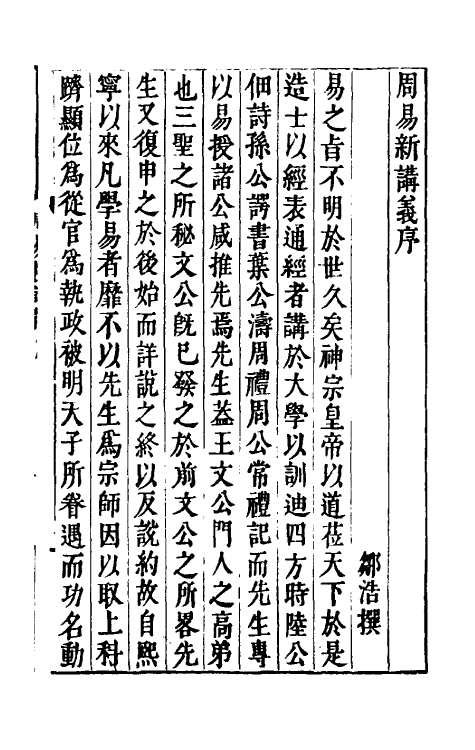 周易新講義序
鄒浩撰
易之旨不明於世久矣神宗皇帝以道莅天下於是
造士以經表通經者講於大學以訓迪四方時陸公
佃詩孫公諤書葉公濤周禮周公常禮記而先生專
以易授諸公咸推先焉先生蓋王文公門人之高弟
也三聖之所秘文公旣已發之於前文公之所畧先
生又復申之於後始而詳說之終以反說約故自熙
寧以來凡學易者靡不以先生爲宗師因以取上科
躋顯位爲從官爲執政被明天子所眷遇而功名動